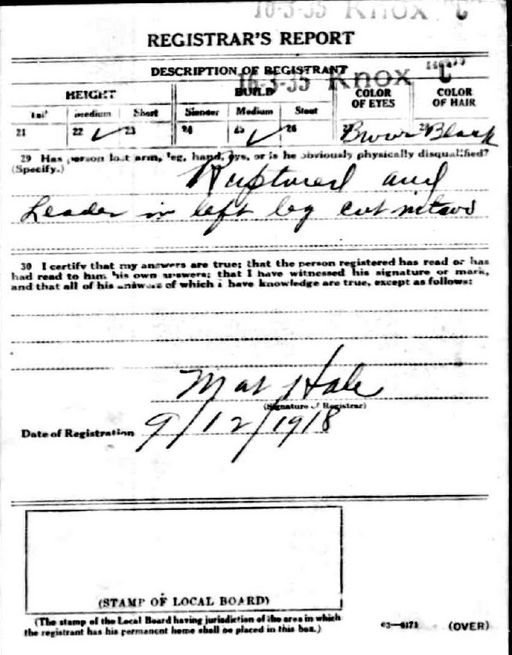 16-3-35 Knox C
REGISTRAR'S REPORT
DESCRIPTION OF REGISTRANT
16-3-35 Knox C
HEIGHT BUILD COLOR OF EYES COLOR OF HAIR
Tall Medium Short Slender Medium Stout
21 22 ✓ 23 24 25 ✓ 26 Brown Black
29 Has person lost arm, leg, hand, eye, or is he obviously physically disqualified?
(Specify.) Ruptured and
Leader in left leg cut in two
30 I certify that my answers are true; that the person registered has read or has
had read to him his own answers; that I have witnessed his signature or mark,
and that all of his answers of which I have knowledge are true, except as follows:
Mat Hale
(Signature of Registrar)
Date of Registration 9/12/1918
(STAMP OF LOCAL BOARD)
(The stamp of the Local Board having jurisdiction of the area in which
the registrant has his permanent home shall be placed in this box.)
03—6171 (OVER)